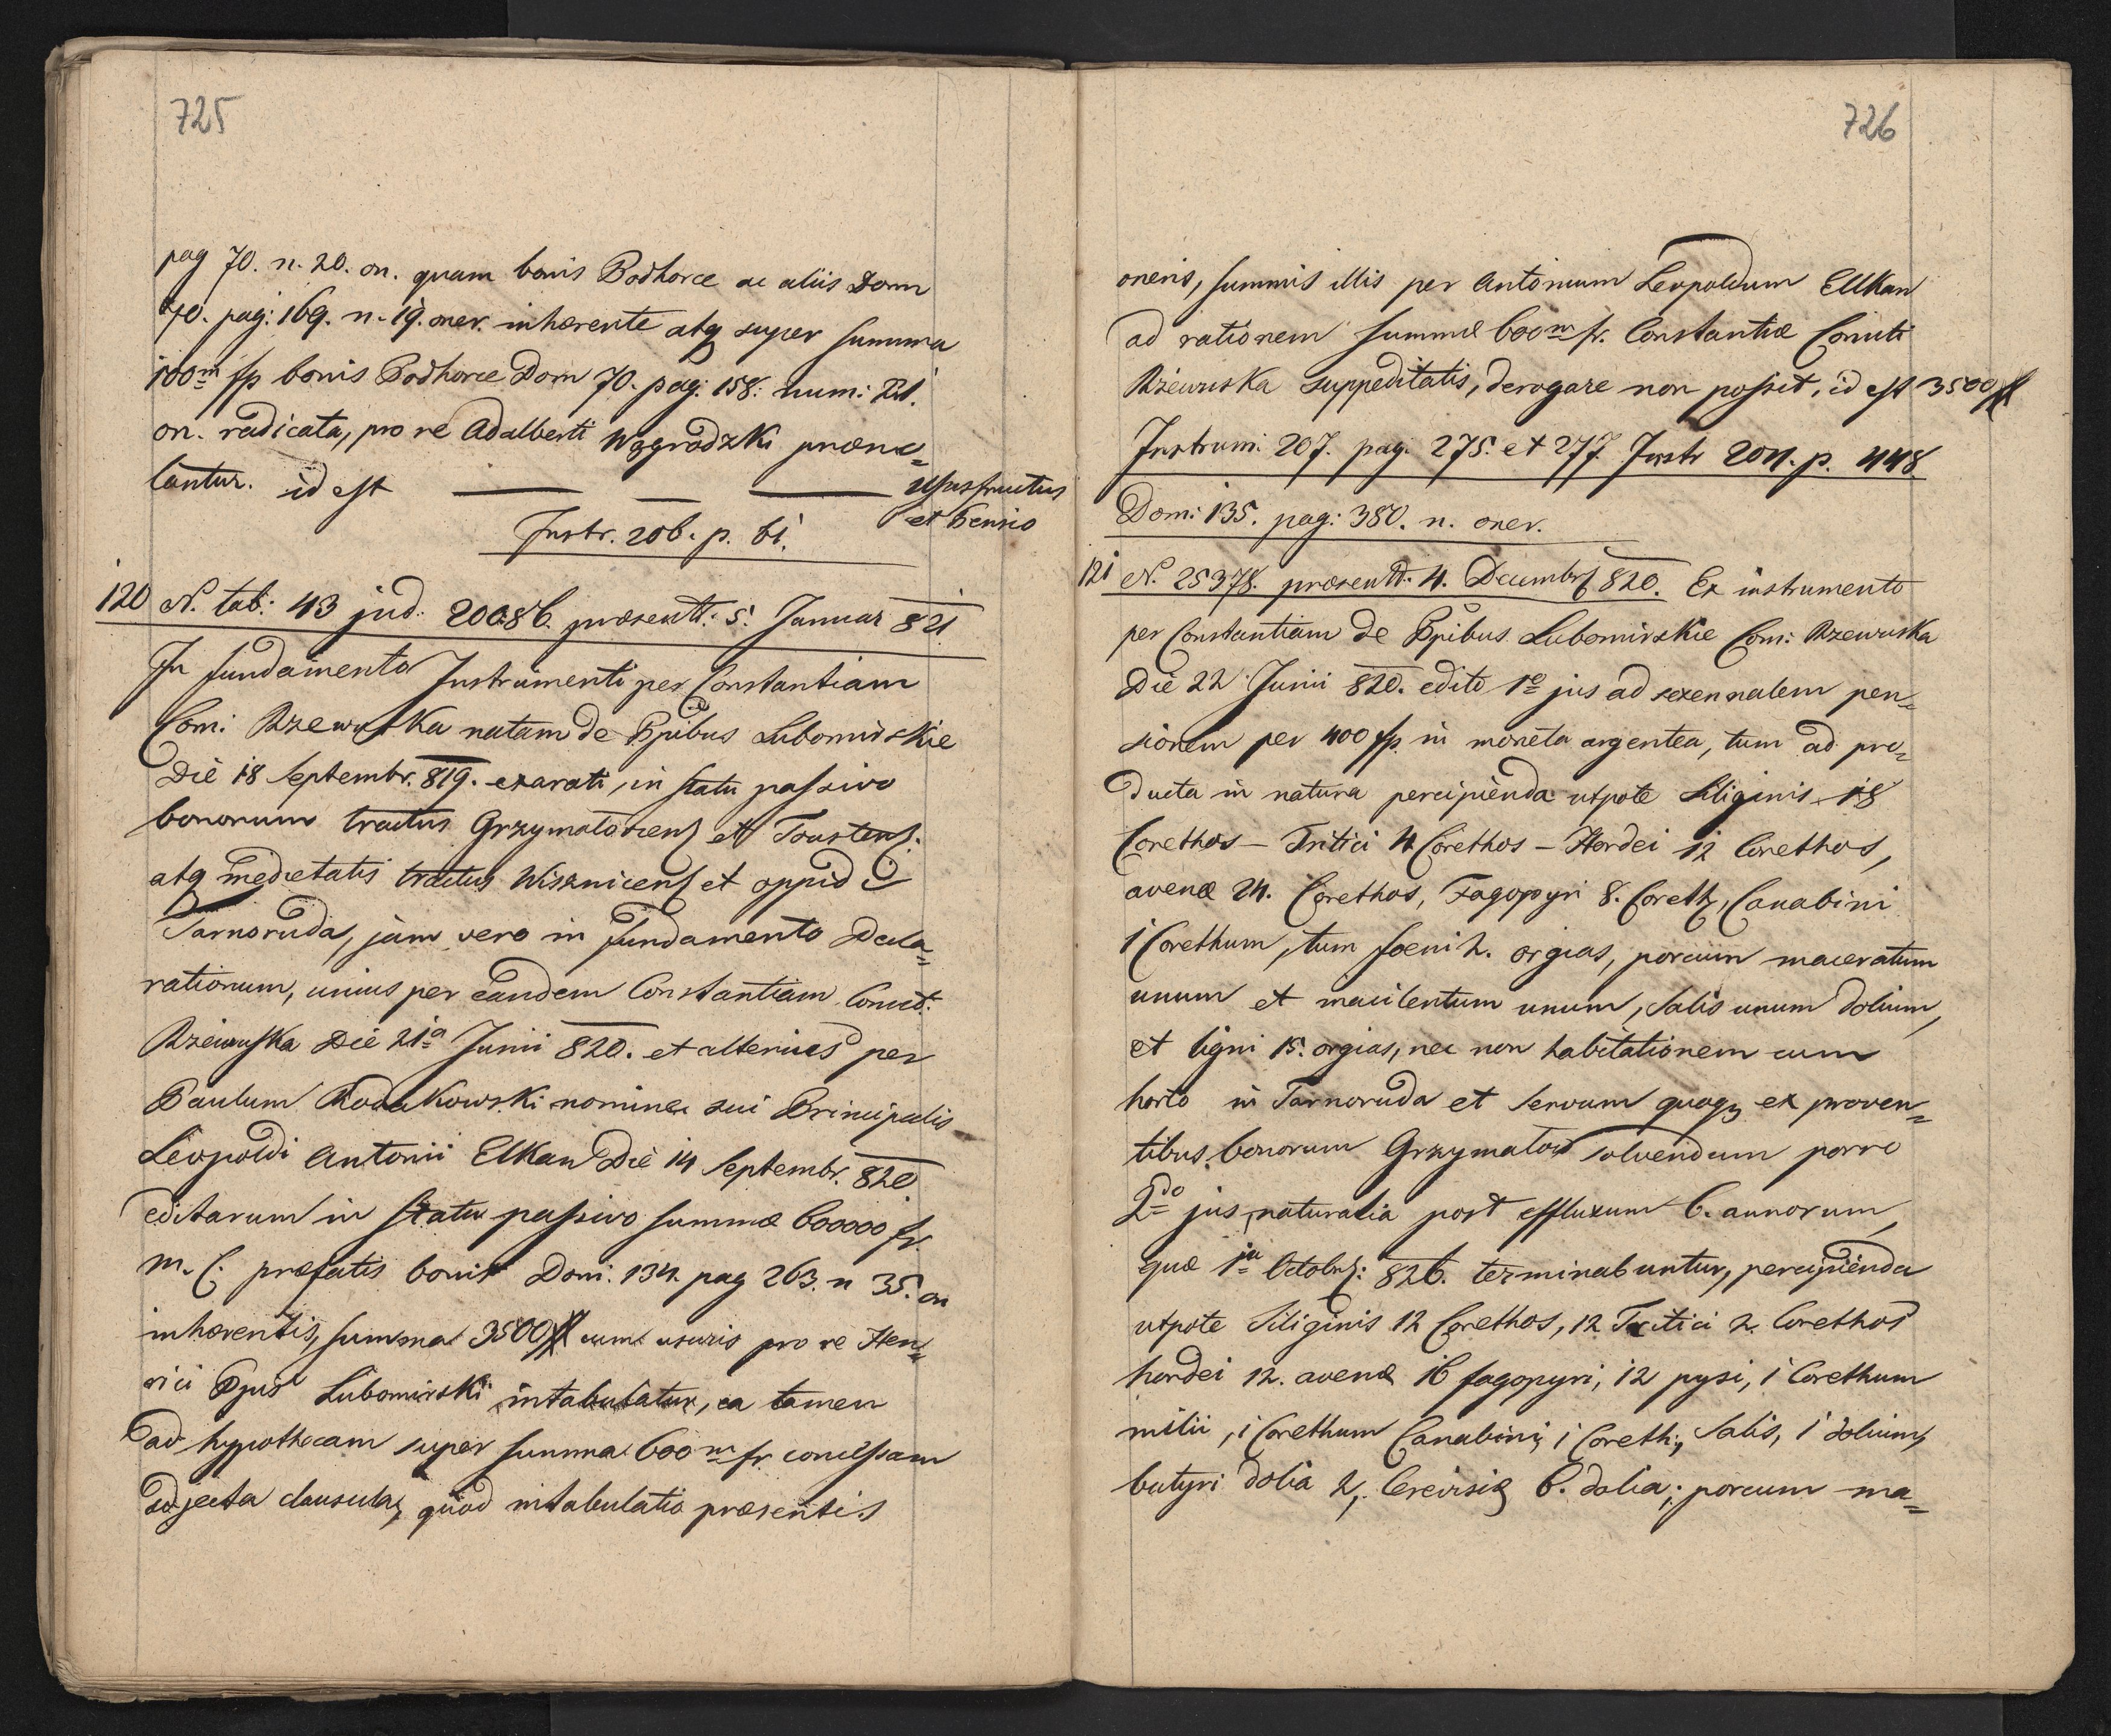 725
pag 70. n. 20. on. quam bonis Podhorce ac aliis Dom
70. pag: 169. n. 19. oner. inhærente atq super summa
100m fp bonis Podhorce Dom 70. pag: 158. num:
on. radicata, pro re Adalberti Wągrodzki præno=
tantur. id est — — — Ususfructus
et Pensio
Instr. 206. p. 61.
120 N. tab: 43 jud: 20086. præsentt: 5. Januar 821
In fundamento Instrumenti per Constantiam
Com: Rzewuska natam de Ppibus Lubomirskie
Die 18 Septembr. 819. exarati, in statu passivo
bonorum tractus Grzymałoviens et Toustens.
atq medietatis tractus Wisznicens et oppid
Tarnoruda, jam vero in fundamento Decla=
rationum, unius per eandem Constantiam Comit.
Rzewuska Die 21a Junii 820. et alterius per
Paulum Rodakowski nomine sui Principalis
Leopoldi Antonii Elkan Die 14 Septembr. 820
editarum in statu passivo summæ 600000 fr.
m. C. præfatis bonis Dom. 134. pag 263. n 35. on
inhærentis, summa 3500 # cum usuris pro re Hen=
rici Ppis Lubomirski intabulatur, ea tamen
ad hypothecam super summa 600m fr concessam
adjecta clausula, quod intabulatio præsentis
726
oneris, summis illis per Antonium Leopoldum Ellkan
ad rationem summæ 600m fr. Constantiæ Comiti
Rzewuska suppeditatis, derogare non possit, id est 3500 #
Instrum: 207. pag. 275. et 277. Instr 204. p. 448.
Dom: 135. pag: 380. n. oner.
121 N. 25378. præsentt: 4. Decembr 820. Ex instrumento
per Constantiam de Ppibus Lubomirskie Com: Rzewuska
Die 22 Junii 820. edito 1o jus ad sexennalem pen=
sionem per 400 fp. in moneta argentea, tum ad pro=
ducta in natura percipienda utpote Siliginis 18
Corethos – Tritici 4 Corethos – Hordei 12 Corethos,
avenæ 24. Corethos, Fagopyri 8. Coreth, Canabini
1 Corethum, tum foeni 2. orgias, porcum maceratum
unum et macilentum unum, Salis unum dolium,
et ligni 15. orgias, nec non habitationem cum
horto in Tarnoruda et servum quoq ex proven=
tibus bonorum Grzymałow solvendum porro
2do jus, naturalia post effluxum 6. annorum,
quæ 1ma Octobr: 826. terminabuntur, percipienda
utpote Siliginis 12 Corethos, 12 Tritici 2. Corethos
hordei 12. avenæ 16 fagopyri, 12 pysi, 1 Corethum
milii, 1 Corethum Canabini, 1 Coreth:, Salis, 1 dolium,
butyri dolia 2, Cerevisiæ 6. dolia; porcum ma=